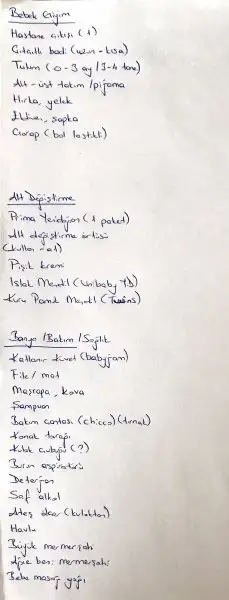 Bebek Giyim
Hastane çıkışı (1)
Çıtçıtlı badi (uzun - kısa)
Tulum (0-3 ay / 3-4 tane)
Alt - üst takım / pijama
Hırka, yelek
Eldiven, şapka
Çorap (bol lastikli)
Alt Değiştirme
Prima Yenidoğan (1 paket)
Alt değiştirme örtüsü
(kullan - at)
Pişik kremi
Islak Mendil (Unibaby YD)
Kuru Pamuk Mendil
Banyo / Bakım / Sağlık
Katlanır küvet (babyjem)
File / mat
Maşrapa, kova
Şampuan
Bakım çantası (chicco) (tırnak)
Konak tarağı
Kulak çubuğu (?)
Burun aspiratörü
Deterjan
Saf alkol
Ateş ölçer (kulaktan)
Havlu
Büyük mermerşahi
Ağız bezi mermerşahi
Bebe masaj yağı